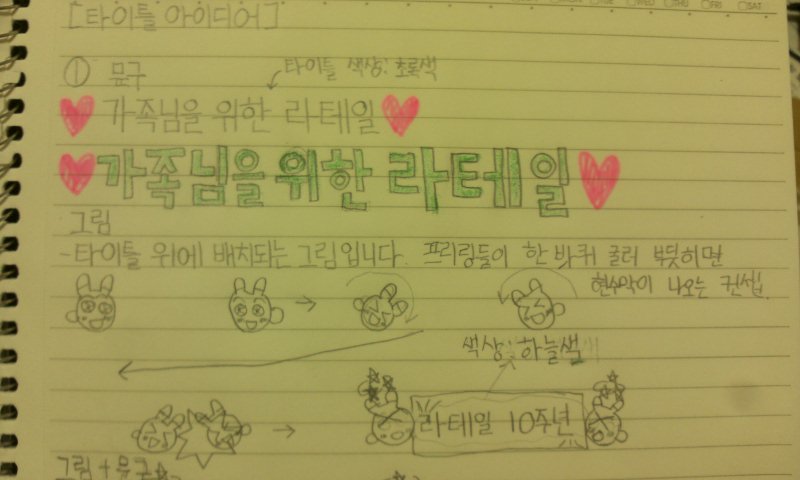 [타이틀 아이디어]
① 문구
타이틀 색상: 초록색
가족님을 위한 라테일
가족님을 위한 라테일
그림
- 타이틀 위에 배치되는 그림입니다. 프리링들이 한 바퀴 굴러 부딪히면
현수막이 나오는 컨셉.
색상: 하늘색
라테일 10주년
그림 + 문구